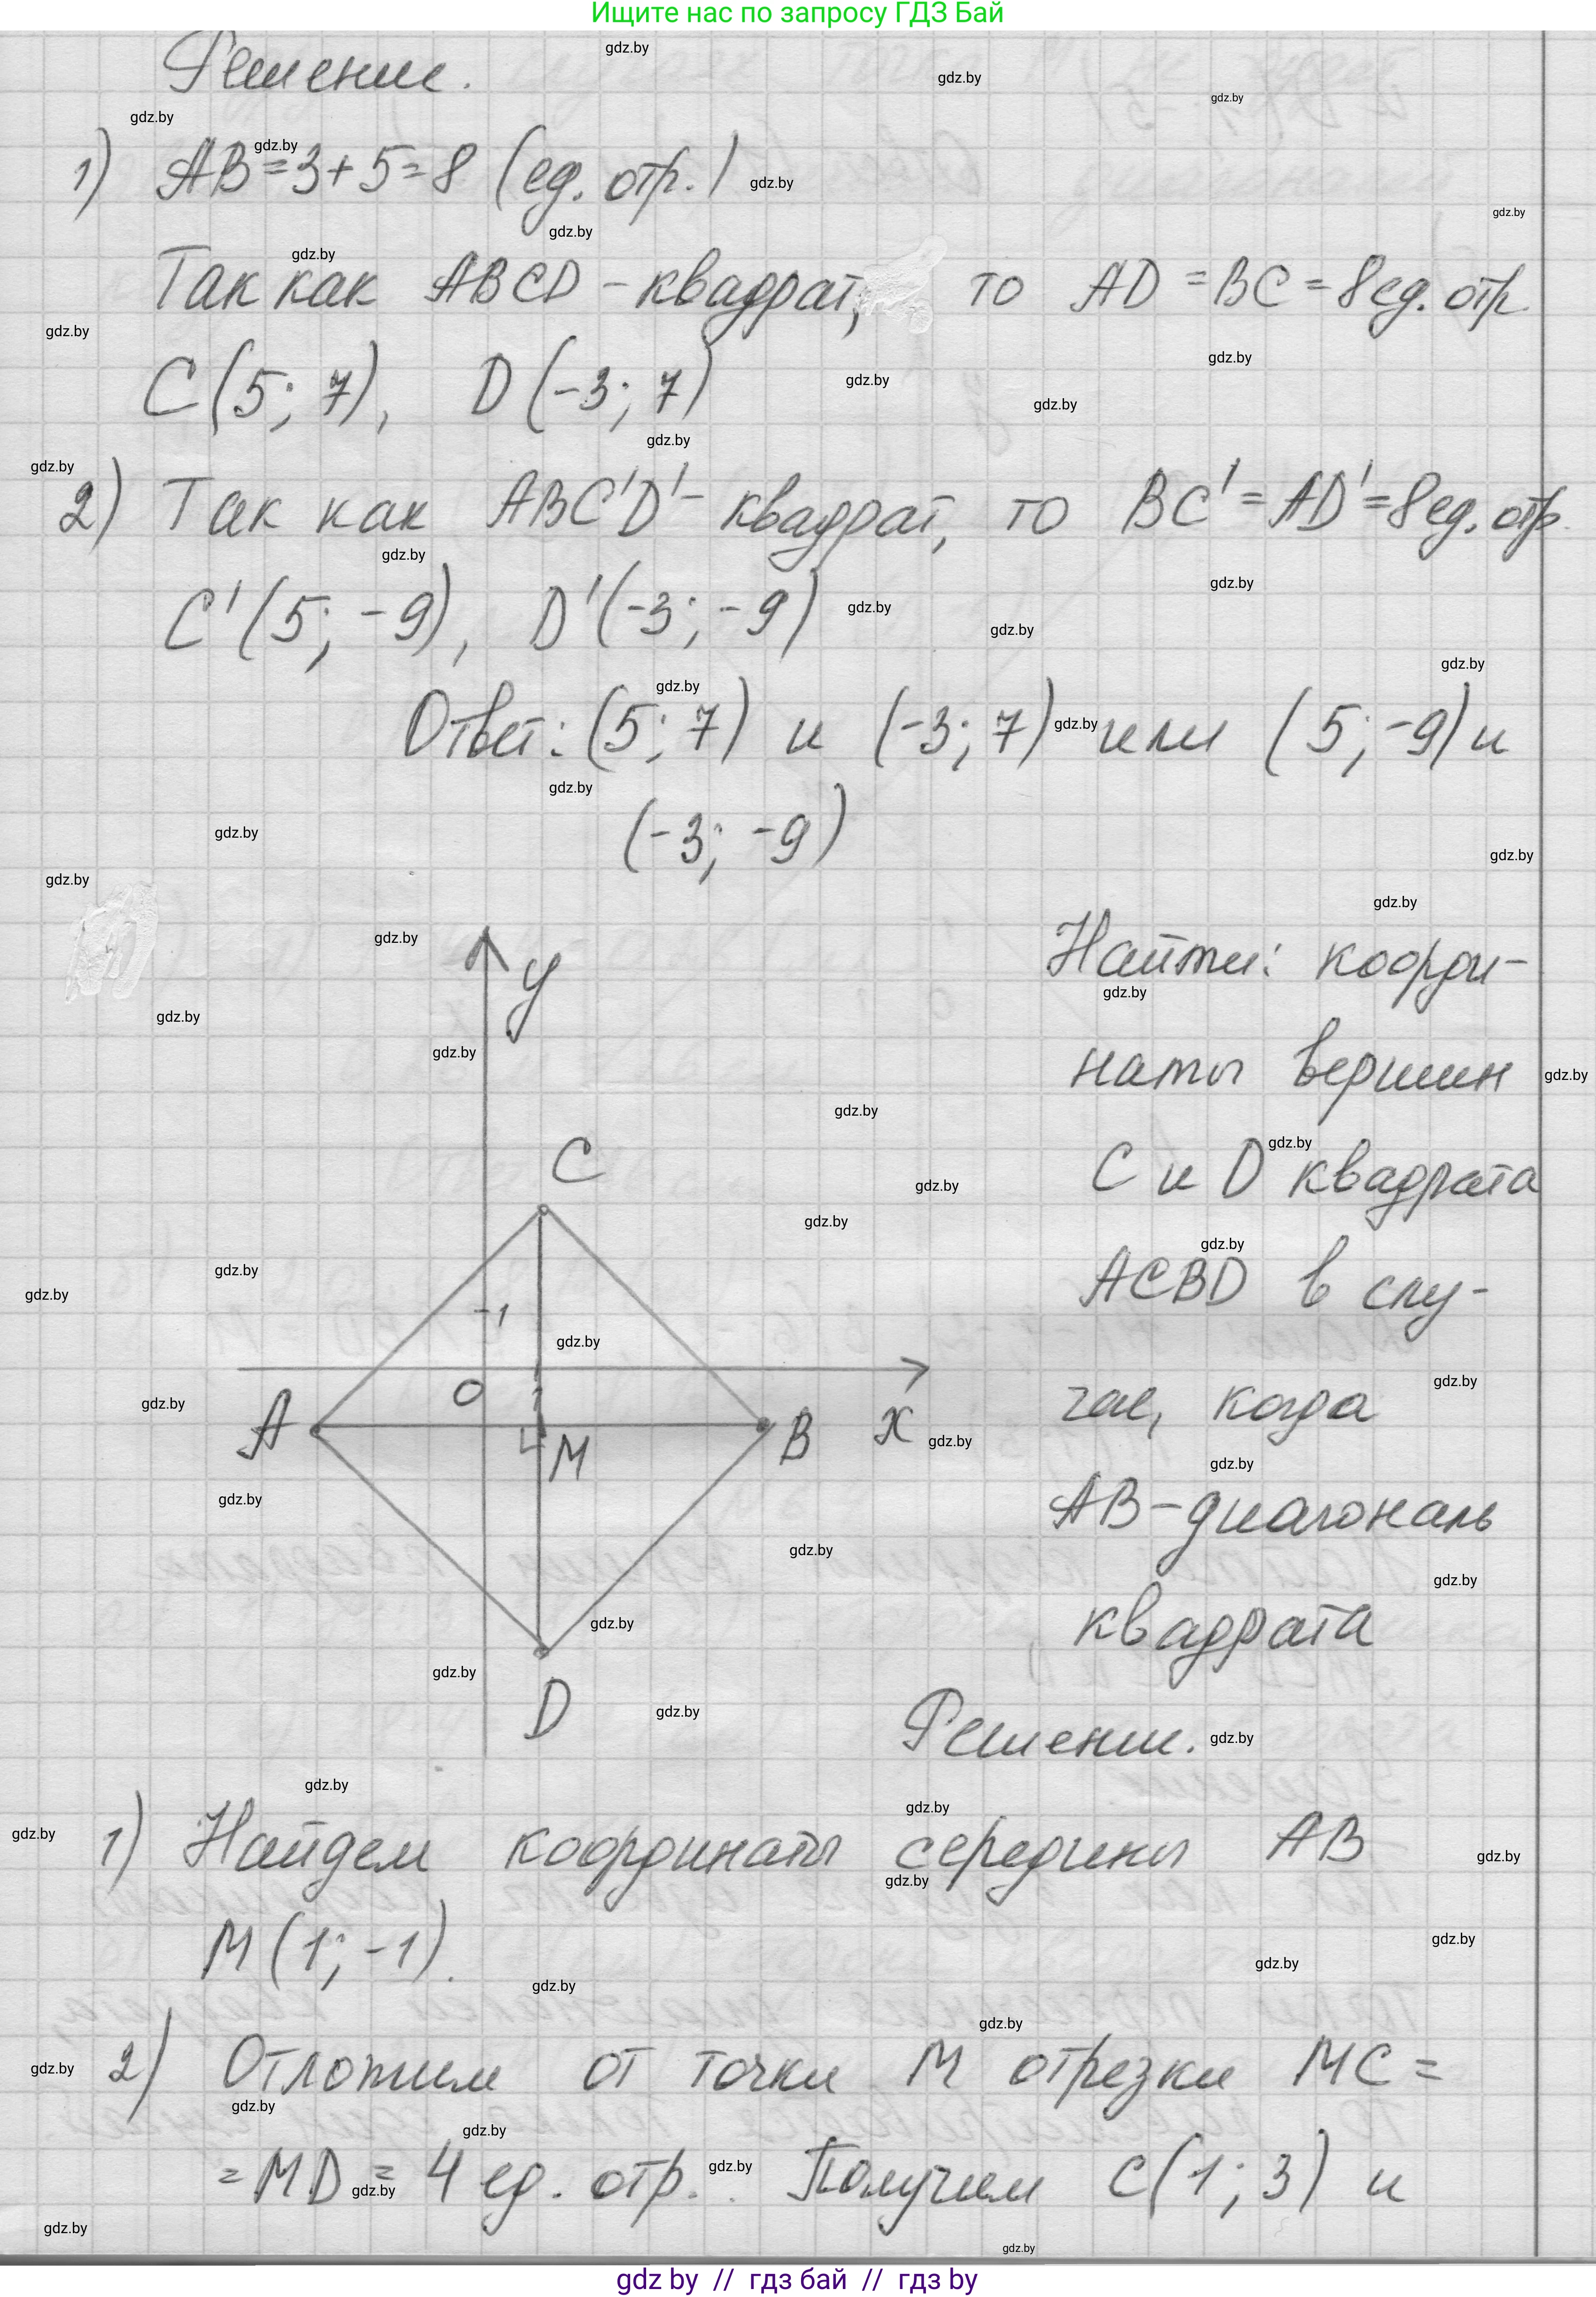 Ищите нас по запросу ГДЗ Бай
Решение.
1) AB = 3 + 5 = 8 (ед. отр.)
Так как ABCD - квадрат, то AD = BC = 8 ед. отр.
C (5; 7), D (-3; 7)
2) Так как ABC'D' - квадрат, то BC' = AD' = 8 ед. отр.
C' (5; -9), D' (-3; -9)
Ответ: (5; 7) и (-3; 7) или (5; -9) и
(-3; -9)
y
C
1
O
A
M
B
x
D
Найти: коорди-
наты вершин
C и D квадрата
ACBD в слу-
чае, когда
AB - диагональ
квадрата
Решение.
1) Найдем координаты середины AB
M (1; -1).
2) Отложим от точки M отрезки MC =
= MD = 4 ед. отр. Получим C (1; 3) и
gdz by // гдз бай // гдз by